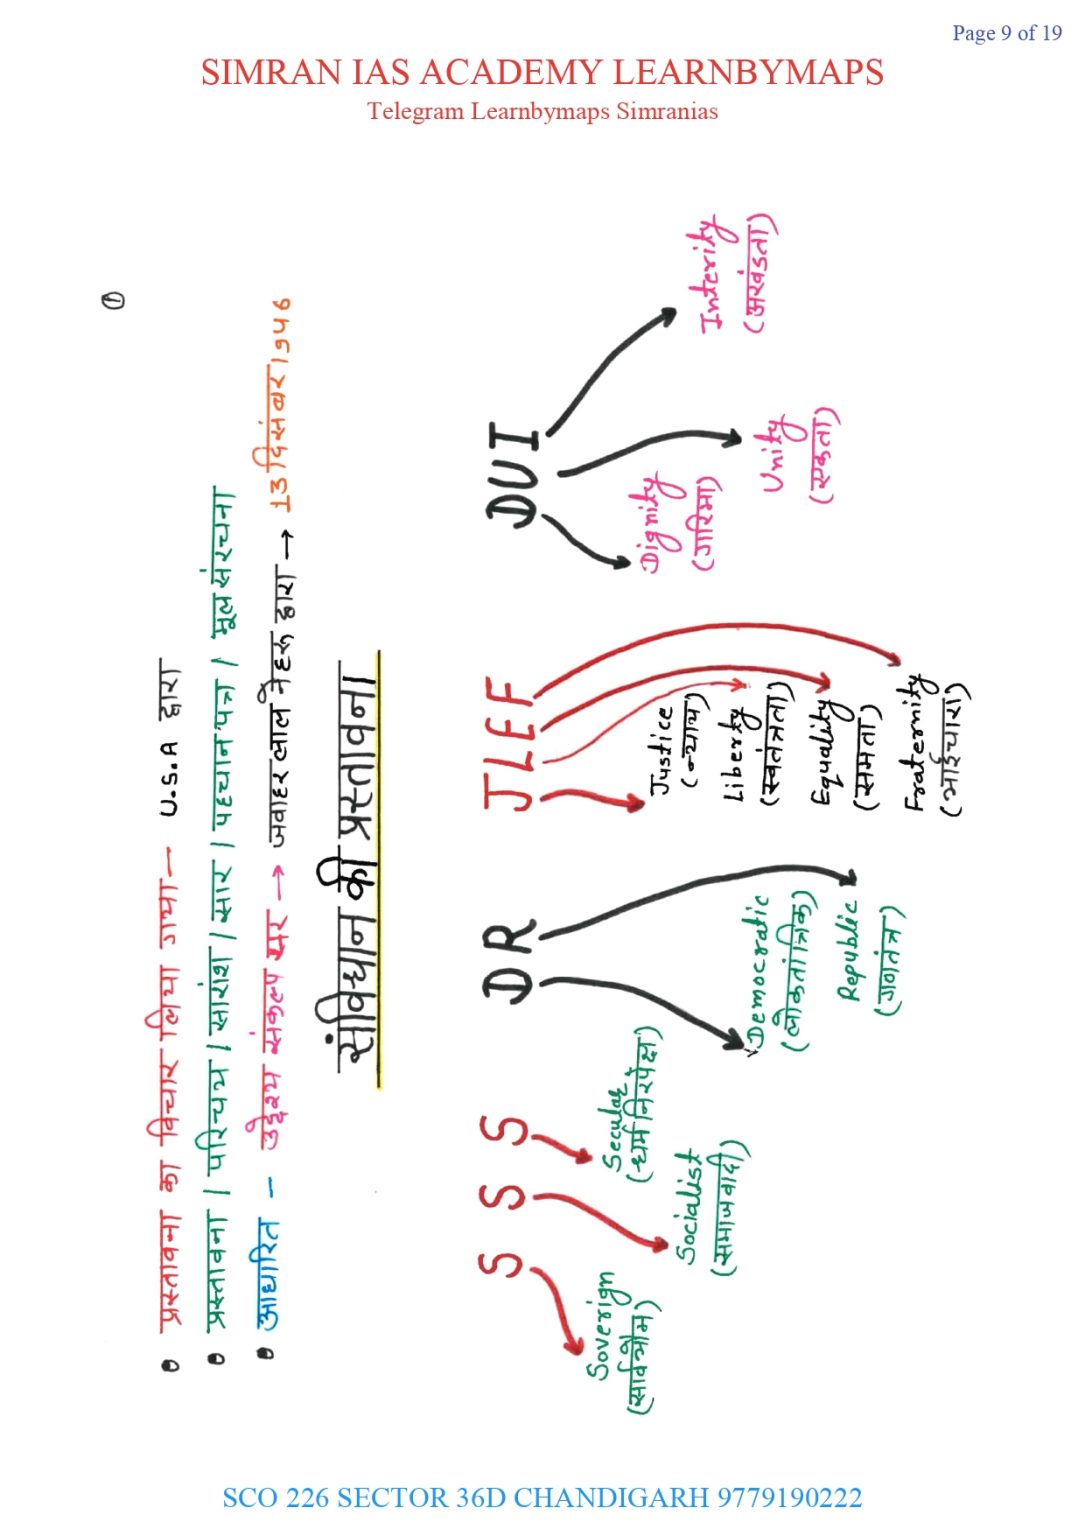 Page 9 of 19
SIMRAN IAS ACADEMY LEARNBYMAPS
Telegram Learnbymaps Simranias
①
प्रस्तावना का विचार लिया गया - U.S.A द्वारा
प्रस्तावना / परिचय / सारांश / सार / पहचान पत्र / मूल संरचना
आधारित - उद्देश्य संकल्प पर → जवाहर लाल नेहरू द्वारा → 13 दिसंबर 1946
संविधान की प्रस्तावना
S S S D R JLEF DUI
Soverign
(सार्वभौम)
Socialist
(समाजवादी)
Secular
(धर्म निरपेक्ष)
Democratic
(लोकतांत्रिक)
Republic
(गणतंत्र)
Justice
(न्याय)
Liberty
(स्वतंत्रता)
Equality
(समता)
Fraternity
(भाईचारा)
Dignity
(गरिमा)
Unity
(एकता)
Interity
(अखंडता)
SCO 226 SECTOR 36D CHANDIGARH 9779190222